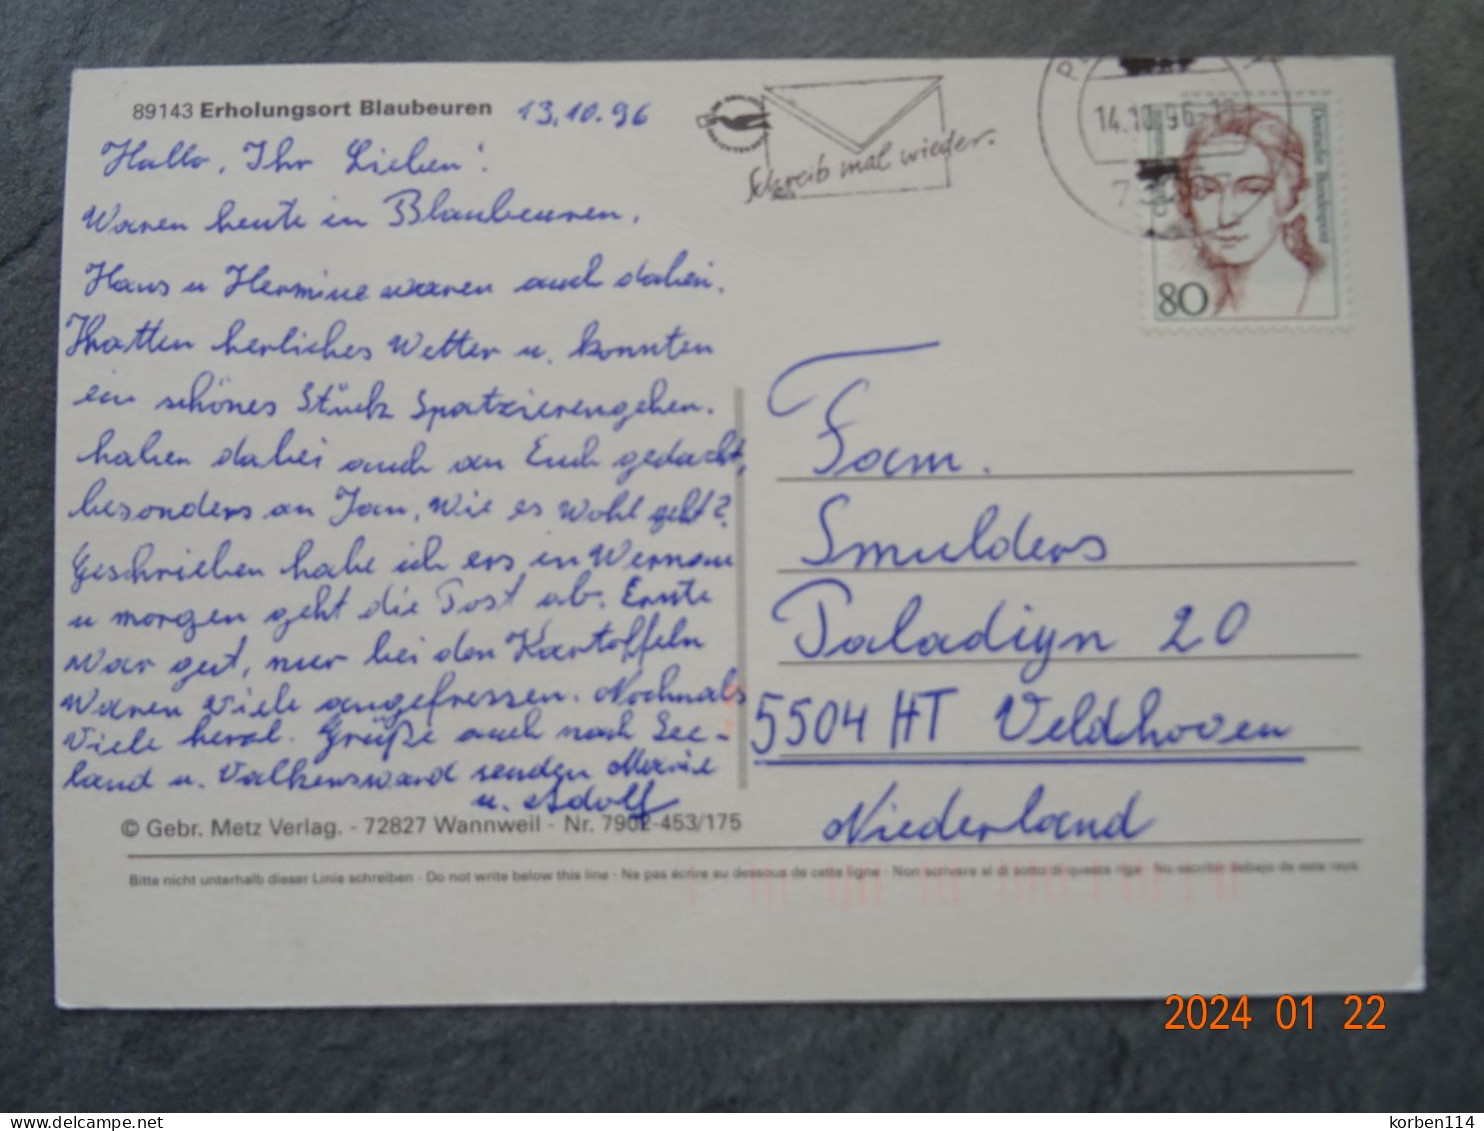 89143 Erholungsort Blaubeuren 13.10.96
Hallo, Ihr Lieben!
Waren heute in Blaubeuren.
Hans u Hermine waren auch dabei.
Hatten herliches Wetter u. konnten
ein schönes Stück Spatzierengehen.
haben dabei auch an Euch gedacht,
besonders an Jan, wie es wohl geht?
Geschrieben habe ich ers in Wernau
u morgen geht die Post ab. Ernte
war gut, nur bei den Kartoffeln
waren viele angefressen. Nochmals
viele herzl. Grüße auch nach See-
land u. Valkenswaard senden Marie
u. Adolf
© Gebr. Metz Verlag. - 72827 Wannweil - Nr. 7902-453/175
Bitte nicht unterhalb dieser Linie schreiben - Do not write below this line - Ne pas écrire au dessous de cette ligne - Non scrivere al di sotto di questa riga - No escribir debajo de esta raya
Schreib mal wieder.
14.10.96
Deutsche Bundespost
80
Fam.
Smulders
Paladijn 20
5504 HT Veldhoven
Niederland
2024 01 22
korben114